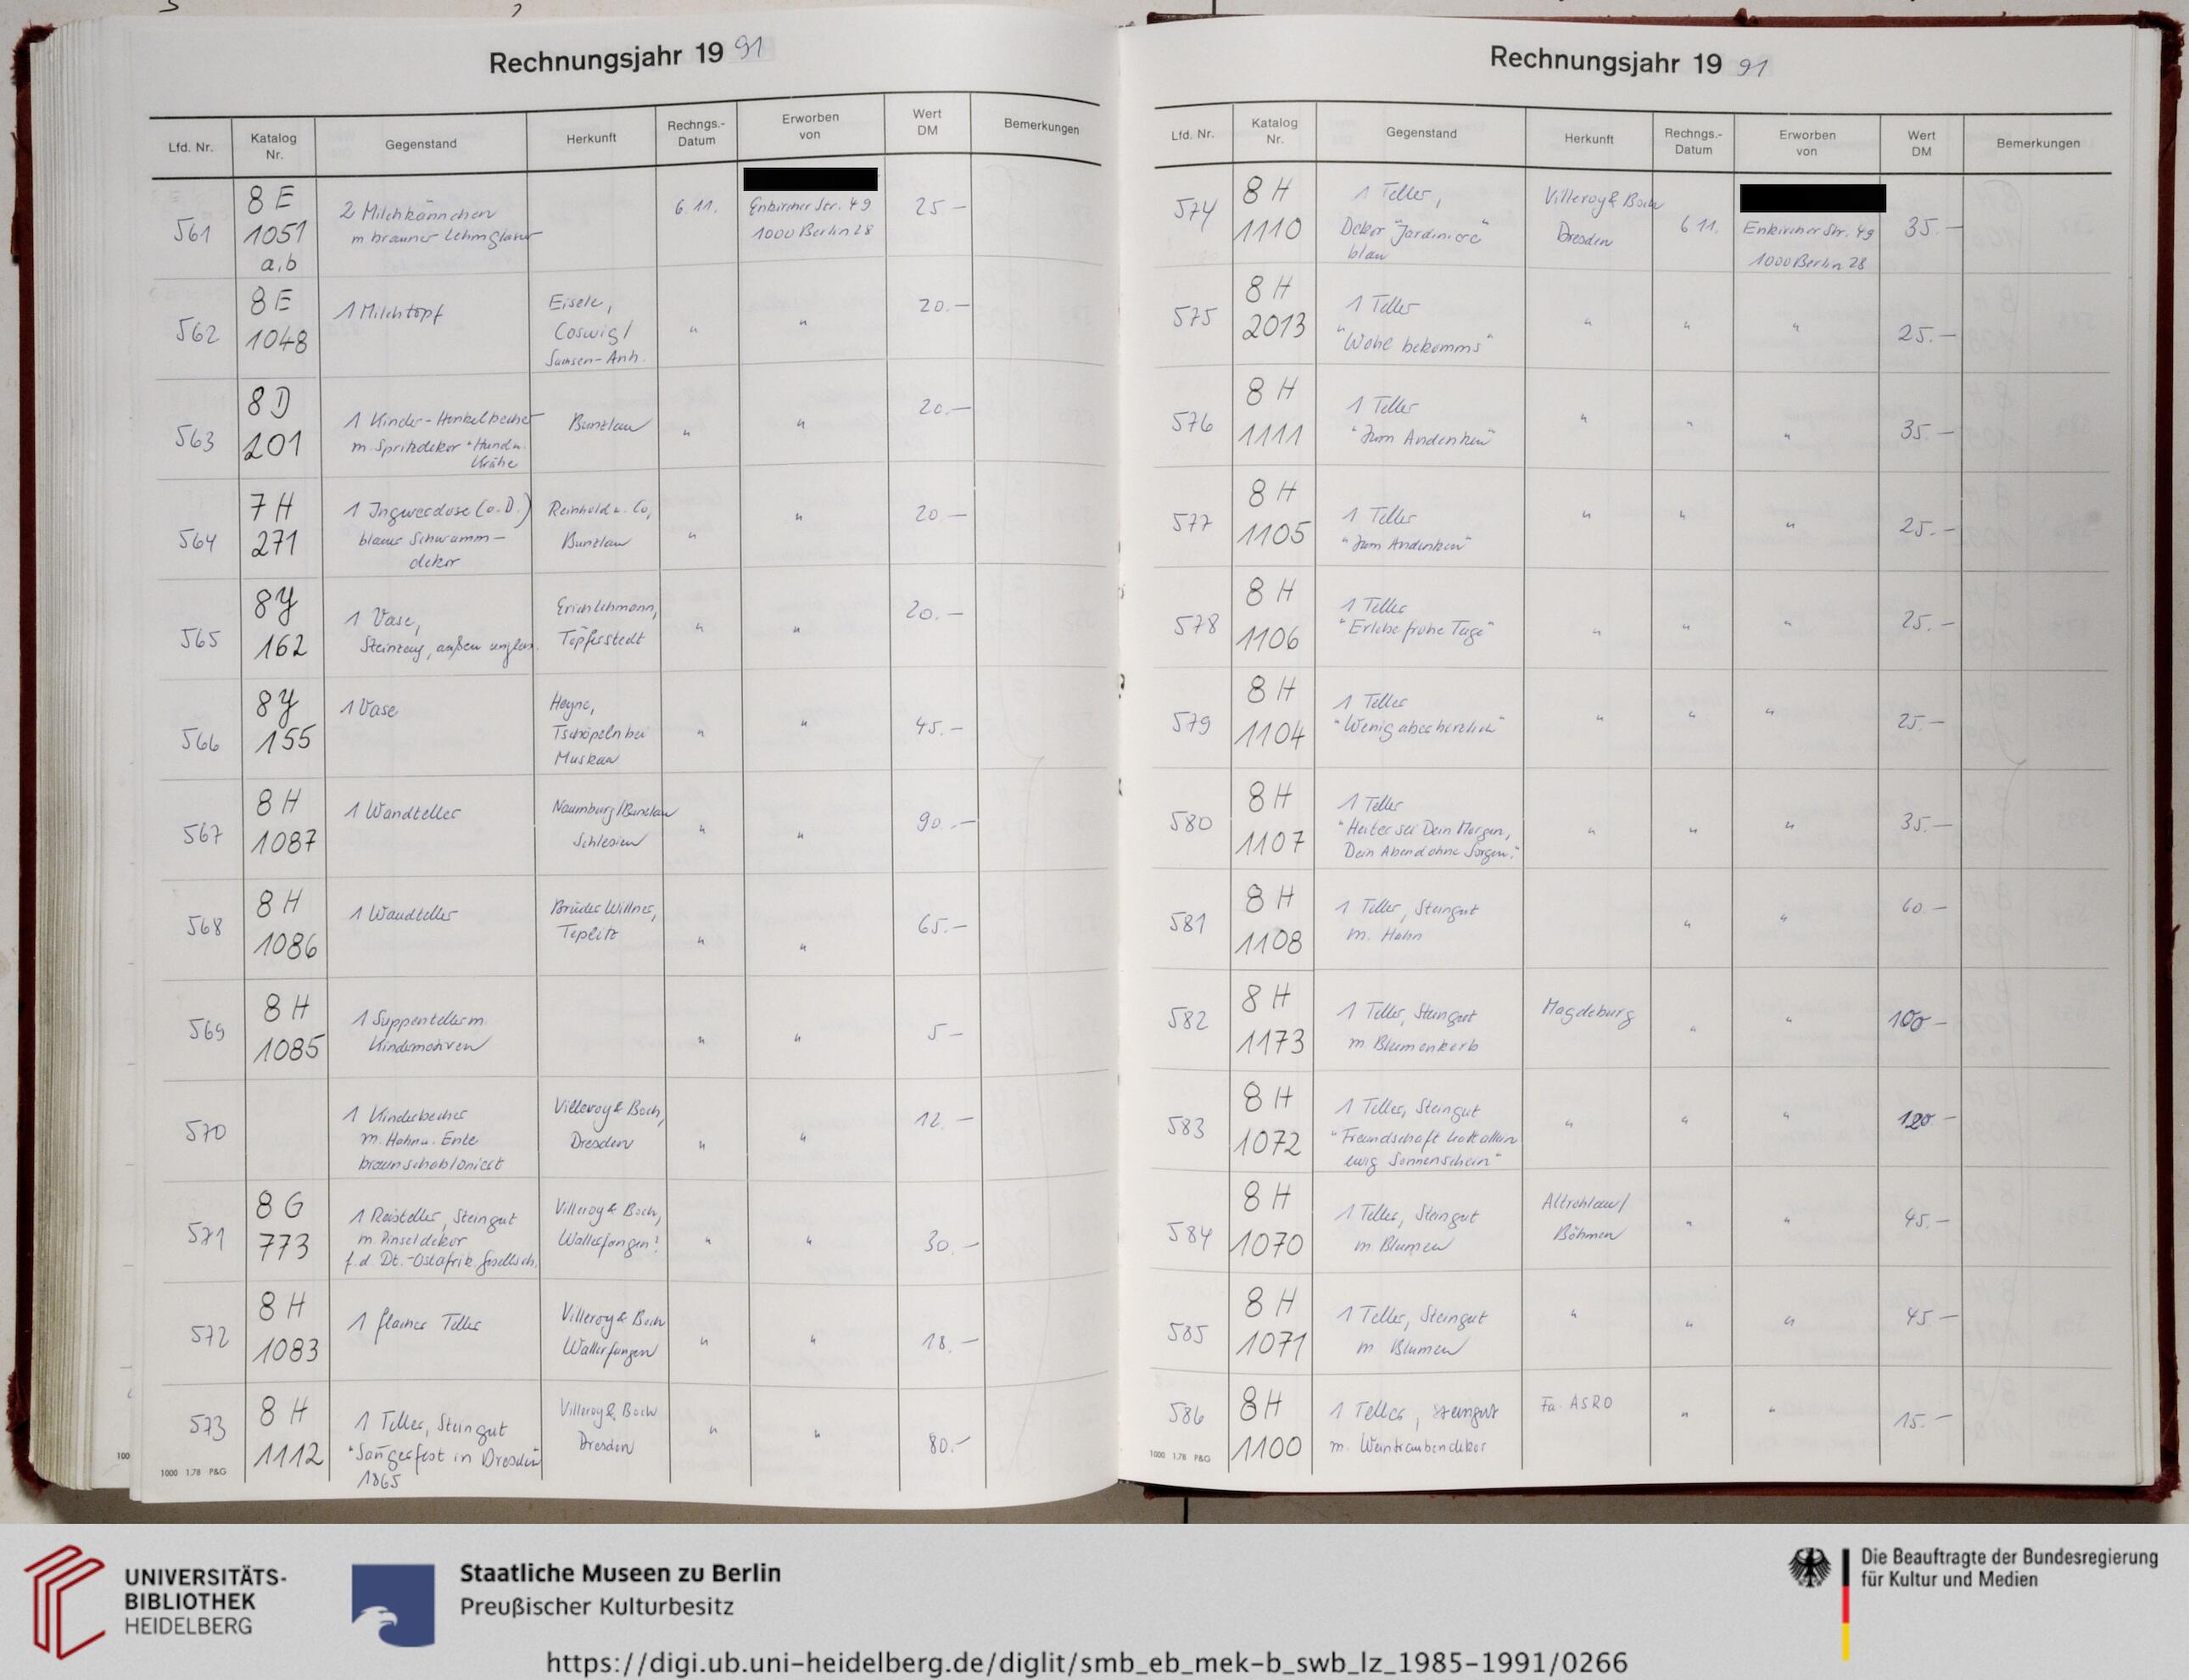 Rechnungsjahr 19 91
Lfd. Nr. Katalog Nr. Gegenstand Herkunft Rechngs.-Datum Erworben von Wert DM Bemerkungen
561 8 E 1051 a,b
2 Milchkännchen
m brauner Lehmglasur
6.11. Enkircher Str. 49
1000 Berlin 28
25.—
562 8 E 1048
1 Milchtopf
Eisele,
Coswig/
Sachsen-Anh.
" " 20.—
563 8 D 201
1 Kinder-Henkelbecher
m. Spritzdekor "Hund u.
Krähe
Bunzlau
" " 20.—
564 7 H 271
1 Ingwerdose (o. D.)
blauer Schwamm-
dekor
Reinhold u. Co,
Bunzlau
" " 20.—
565 8 Y 162
1 Vase,
Steinzeug, außen unglas.
Erich Lehmann,
Töpferstedt
" " 20.—
566 8 Y 155
1 Vase
Heyne,
Tschöpeln bei
Muskau
" " 45.—
567 8 H 1087
1 Wandteller
Naumburg/Bunzlau
Schlesien
" " 90.—
568 8 H 1086
1 Wandteller
Brüder Willner,
Teplitz
" " 65.—
569 8 H 1085
1 Suppenteller m.
" " 5—
570
1 Kinderbecher
m. Hahn u. Ente
braun schabloniert
Villeroy & Boch,
Dresden
" " 12.—
571 8 G 773
1 Reisteller, Steingut
m. Pinseldekor
f. d. Dt.-Ostafrik. Gesellsch.
Villeroy & Boch,
Wallerfangen?
" " 30.—
572 8 H 1083
1 flacher Teller
Villeroy & Boch
Wallerfangen
" " 18.—
573 8 H 1112
1 Teller, Steingut
"Sängerfest in Dresden"
1865
Villeroy & Boch
Dresden
" " 80.—
100
1000 1.78 P&G
Rechnungsjahr 19 91
Lfd. Nr. Katalog Nr. Gegenstand Herkunft Rechngs.-Datum Erworben von Wert DM Bemerkungen
574 8 H 1110
1 Teller,
Dekor "Jardiniere"
blau
Villeroy & Boch
Dresden
6 11. Enkircher Str. 49
1000 Berlin 28
35.—
575 8 H 2013
1 Teller
"Wohl bekomms"
" " " 25.—
576 8 H 1111
1 Teller
"Zum Andenken"
" " " 35.—
577 8 H 1105
1 Teller
"Zum Andenken"
" " " 25.—
578 8 H 1106
1 Teller
"Erlebe frohe Tage"
" " " 25.—
579 8 H 1104
1 Teller
"Wenig aber herzlich"
" " " 25.—
580 8 H 1107
1 Teller
"Heiter sei Dein Morgen,
Dein Abend ohne Sorgen."
" " " 35.—
581 8 H 1108
1 Teller, Steingut
m. Hahn
" " 60.—
582 8 H 1173
1 Teller, Steingut
m. Blumenkorb
Magdeburg
" " 100—
583 8 H 1072
1 Teller, Steingut
"Freundschaft hat allein
ewig Sonnenschein"
" " " 120—
584 8 H 1070
1 Teller, Steingut
m. Blumen
Altrohlau/
Böhmen
" " 45.—
585 8 H 1071
1 Teller, Steingut
m Blumen
" " " 45—
586 8 H 1100
1 Teller, Steingut
m. Weintraubendekor
Fa. ASRO
" " 15.—
1000 1.78 P&G
UNIVERSITÄTS-
BIBLIOTHEK
HEIDELBERG
Staatliche Museen zu Berlin
Preußischer Kulturbesitz
Die Beauftragte der Bundesregierung
für Kultur und Medien
https://digi.ub.uni-heidelberg.de/diglit/smb_eb_mek-b_swb_lz_1985-1991/0266